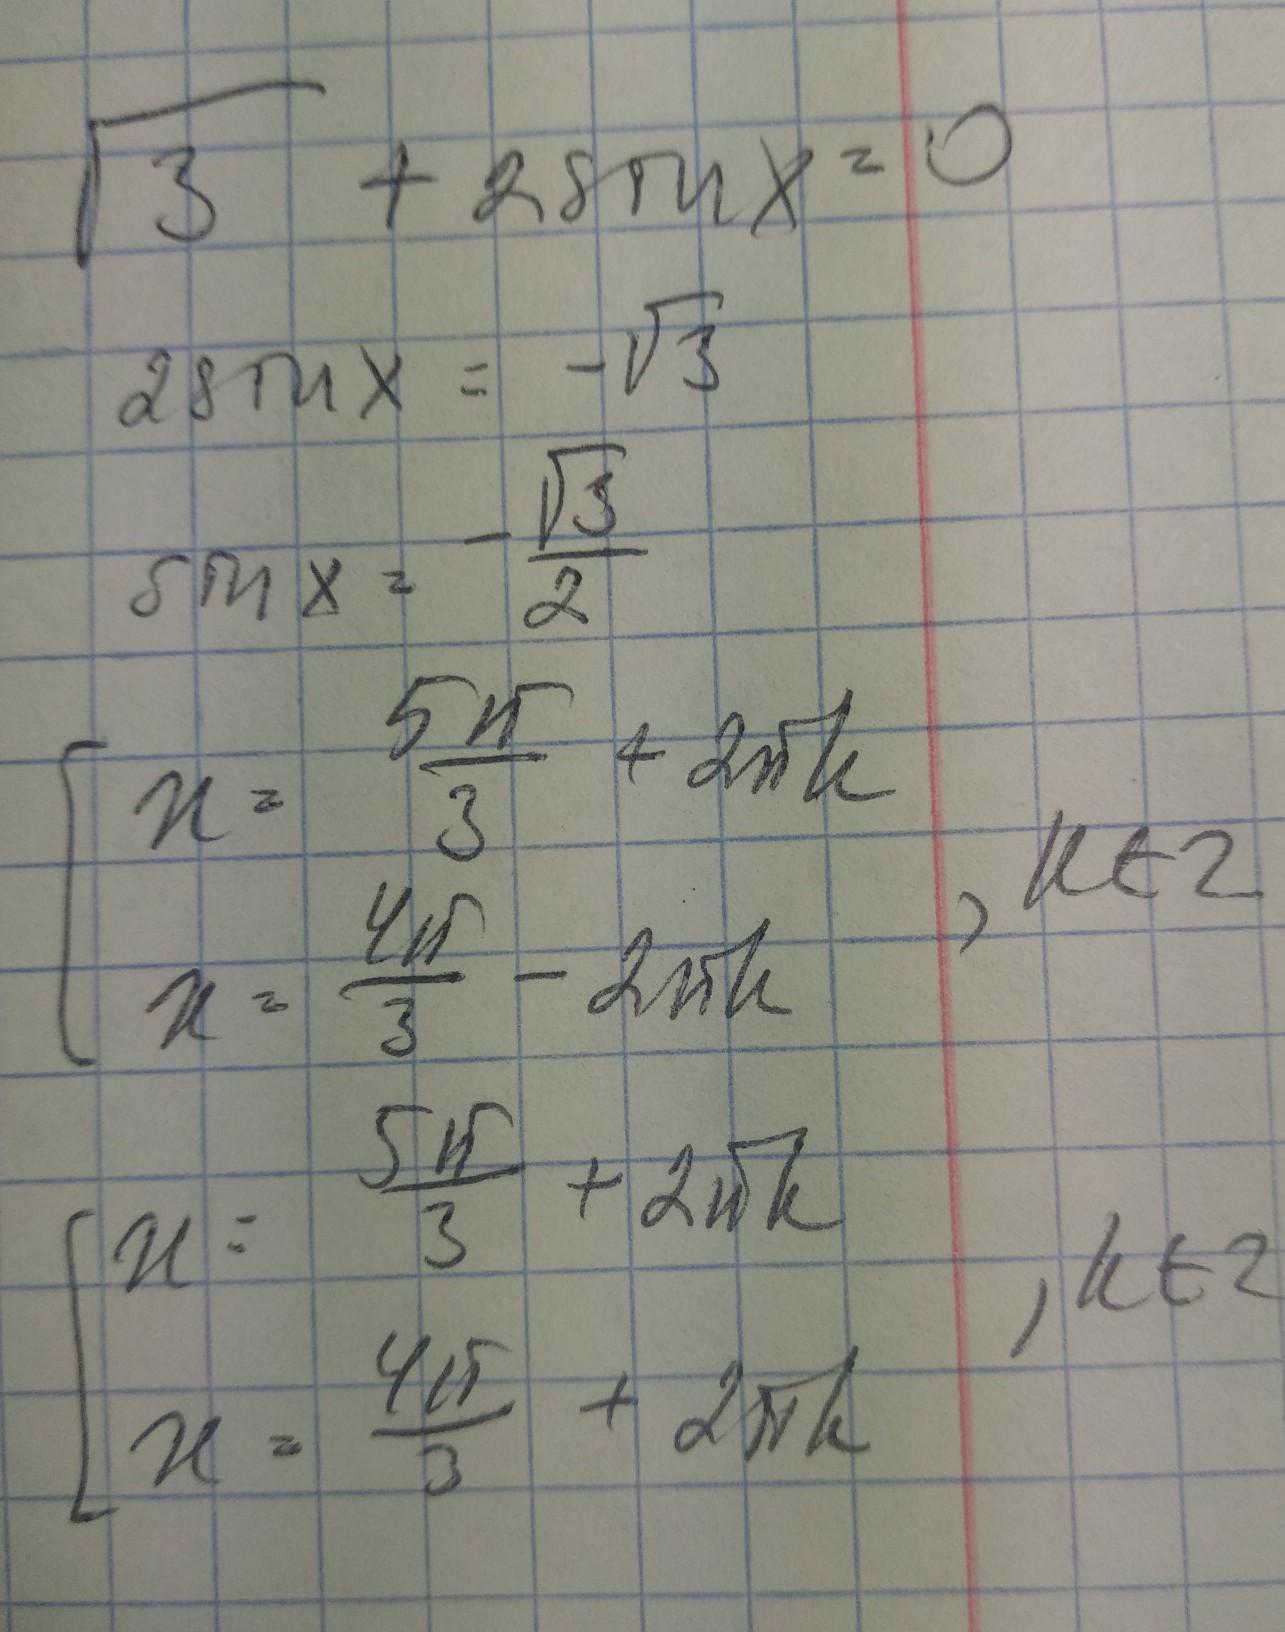 √3 + 2sin x = 0
2sin x = -√3
sin x = -√3/2
[ x = 5π/3 + 2πk
, k ∈ Z
x = 4π/3 - 2πk
[ x = 5π/3 + 2πk
, k ∈ Z
x = 4π/3 + 2πk